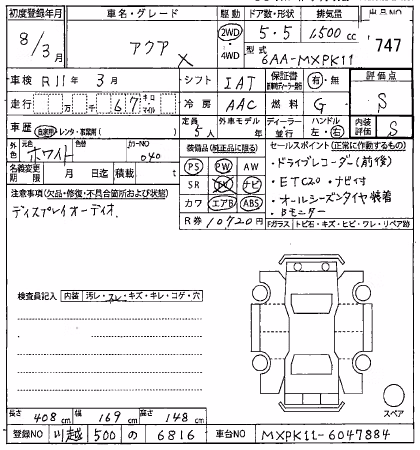 初度登録年月 車名・グレード 駆動 ドア数・形状 排気量 出品NO
8/3月 アクア X 2WD・4WD 5・5 1500cc 747
型式 6AA-MXPK11
車検 R11年3月 シフト IAT 保証書 有・無 評価点
走行 万 千 67 キロ マイル 冷房 AAC 燃料 G S
車歴 自家用・レンタ・事業用( ) 定員 5人 外車モデル 年 ディーラー・並行 ハンドル 左・右 内装評価 S
外色 元色 ホワイト 色替 カラーNO 040 装備品(純正品に限る) セールスポイント(正常に作動するもの)
名義変更期限 月 日迄 積載 t PS PW AW ・ドライブレコーダー(前後)
注意事項(欠品・修復・不具合箇所および状態) SR ナビ ・ETC2.0・ナビ付
ディスプレイオーディオ カワ エアB ABS ・オールシーズンタイヤ装着
・Bモニター
R券 10720円 Fガラス トビ石・キズ・ヒビ・ワレ・リペア跡
検査員記入 内装 汚レ・スレ・キズ・キレ・コゲ・穴
スペア
長さ 408cm 幅 169cm 高さ 148cm
登録NO 川越 500 の 6816 車台NO MXPK11-6047884